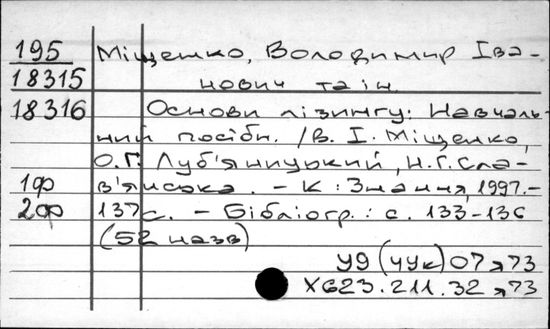 195 Міщенко, Володимир Іва-
18315 нович та ін.
18316 Основи лізингу: Навчаль-
ний посібн. /В. І. Міщенко,
О.Г. Луб'яницький, Н.Г. Сла-
1ф в'янська. – К : Знання, 1997.–
2ф 137 с. – Бібліогр.: с. 133–136
(52 назв)
У9(4Ук)07я73
Х623.211.32я73